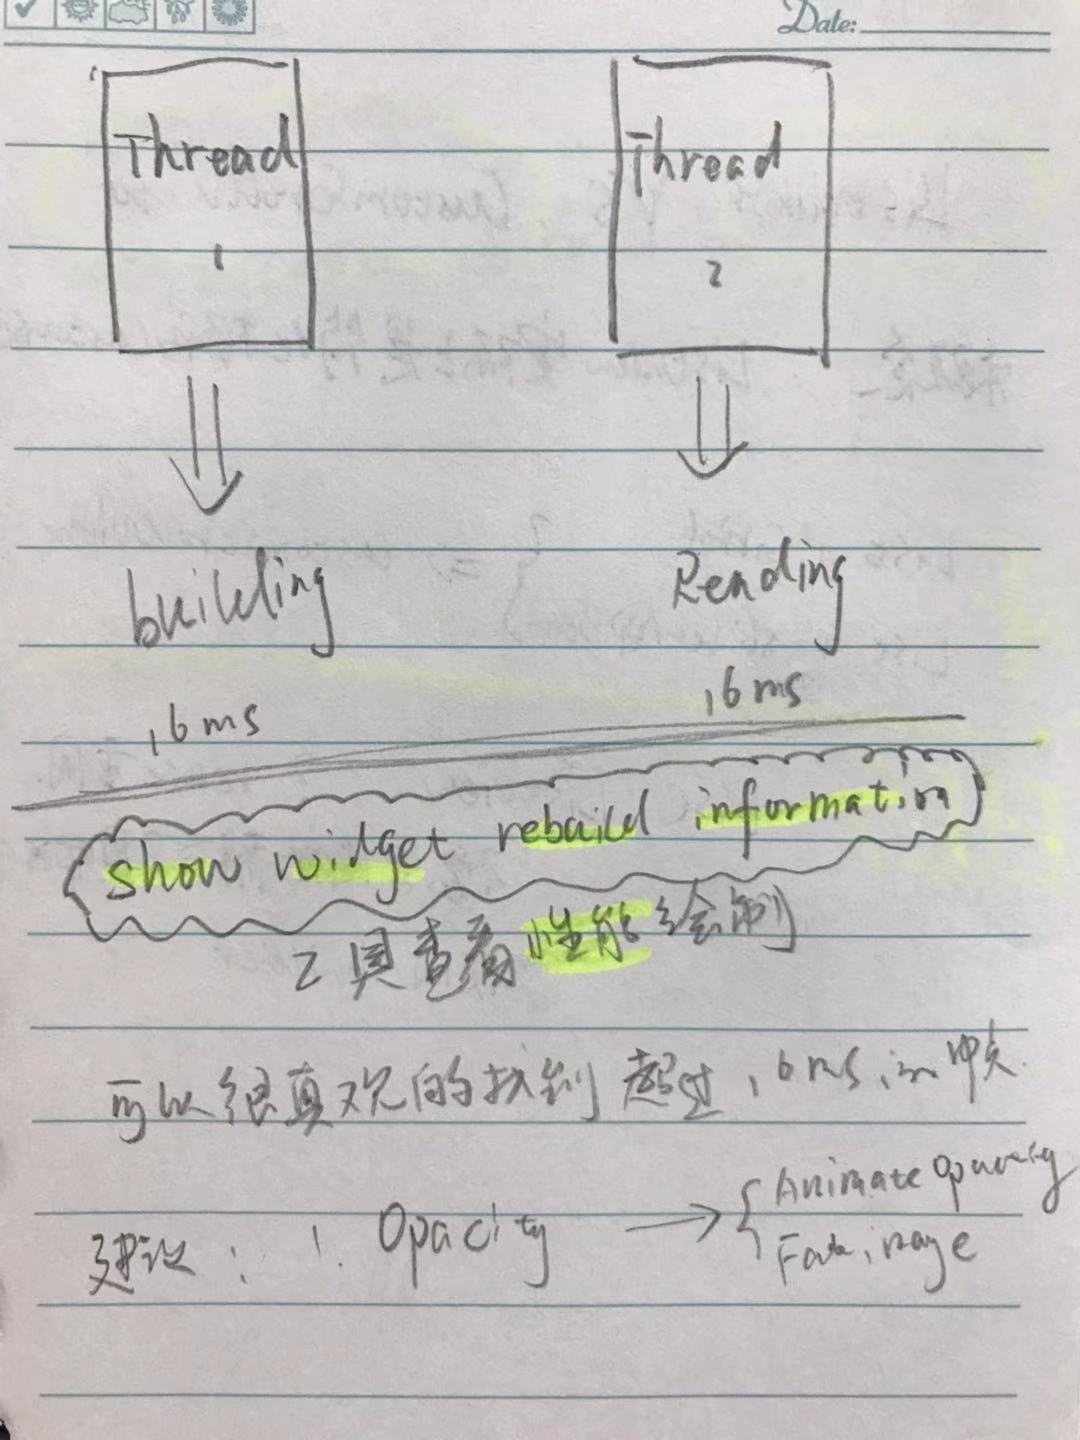 Date:
Thread
1
Thread
2
building
Reading
16ms
16ms
show widget rebuild information
工具查看性能绘制
可以很直观的找到超过16ms
建议: 1. Opacity →
Animate Opacity
Fade image